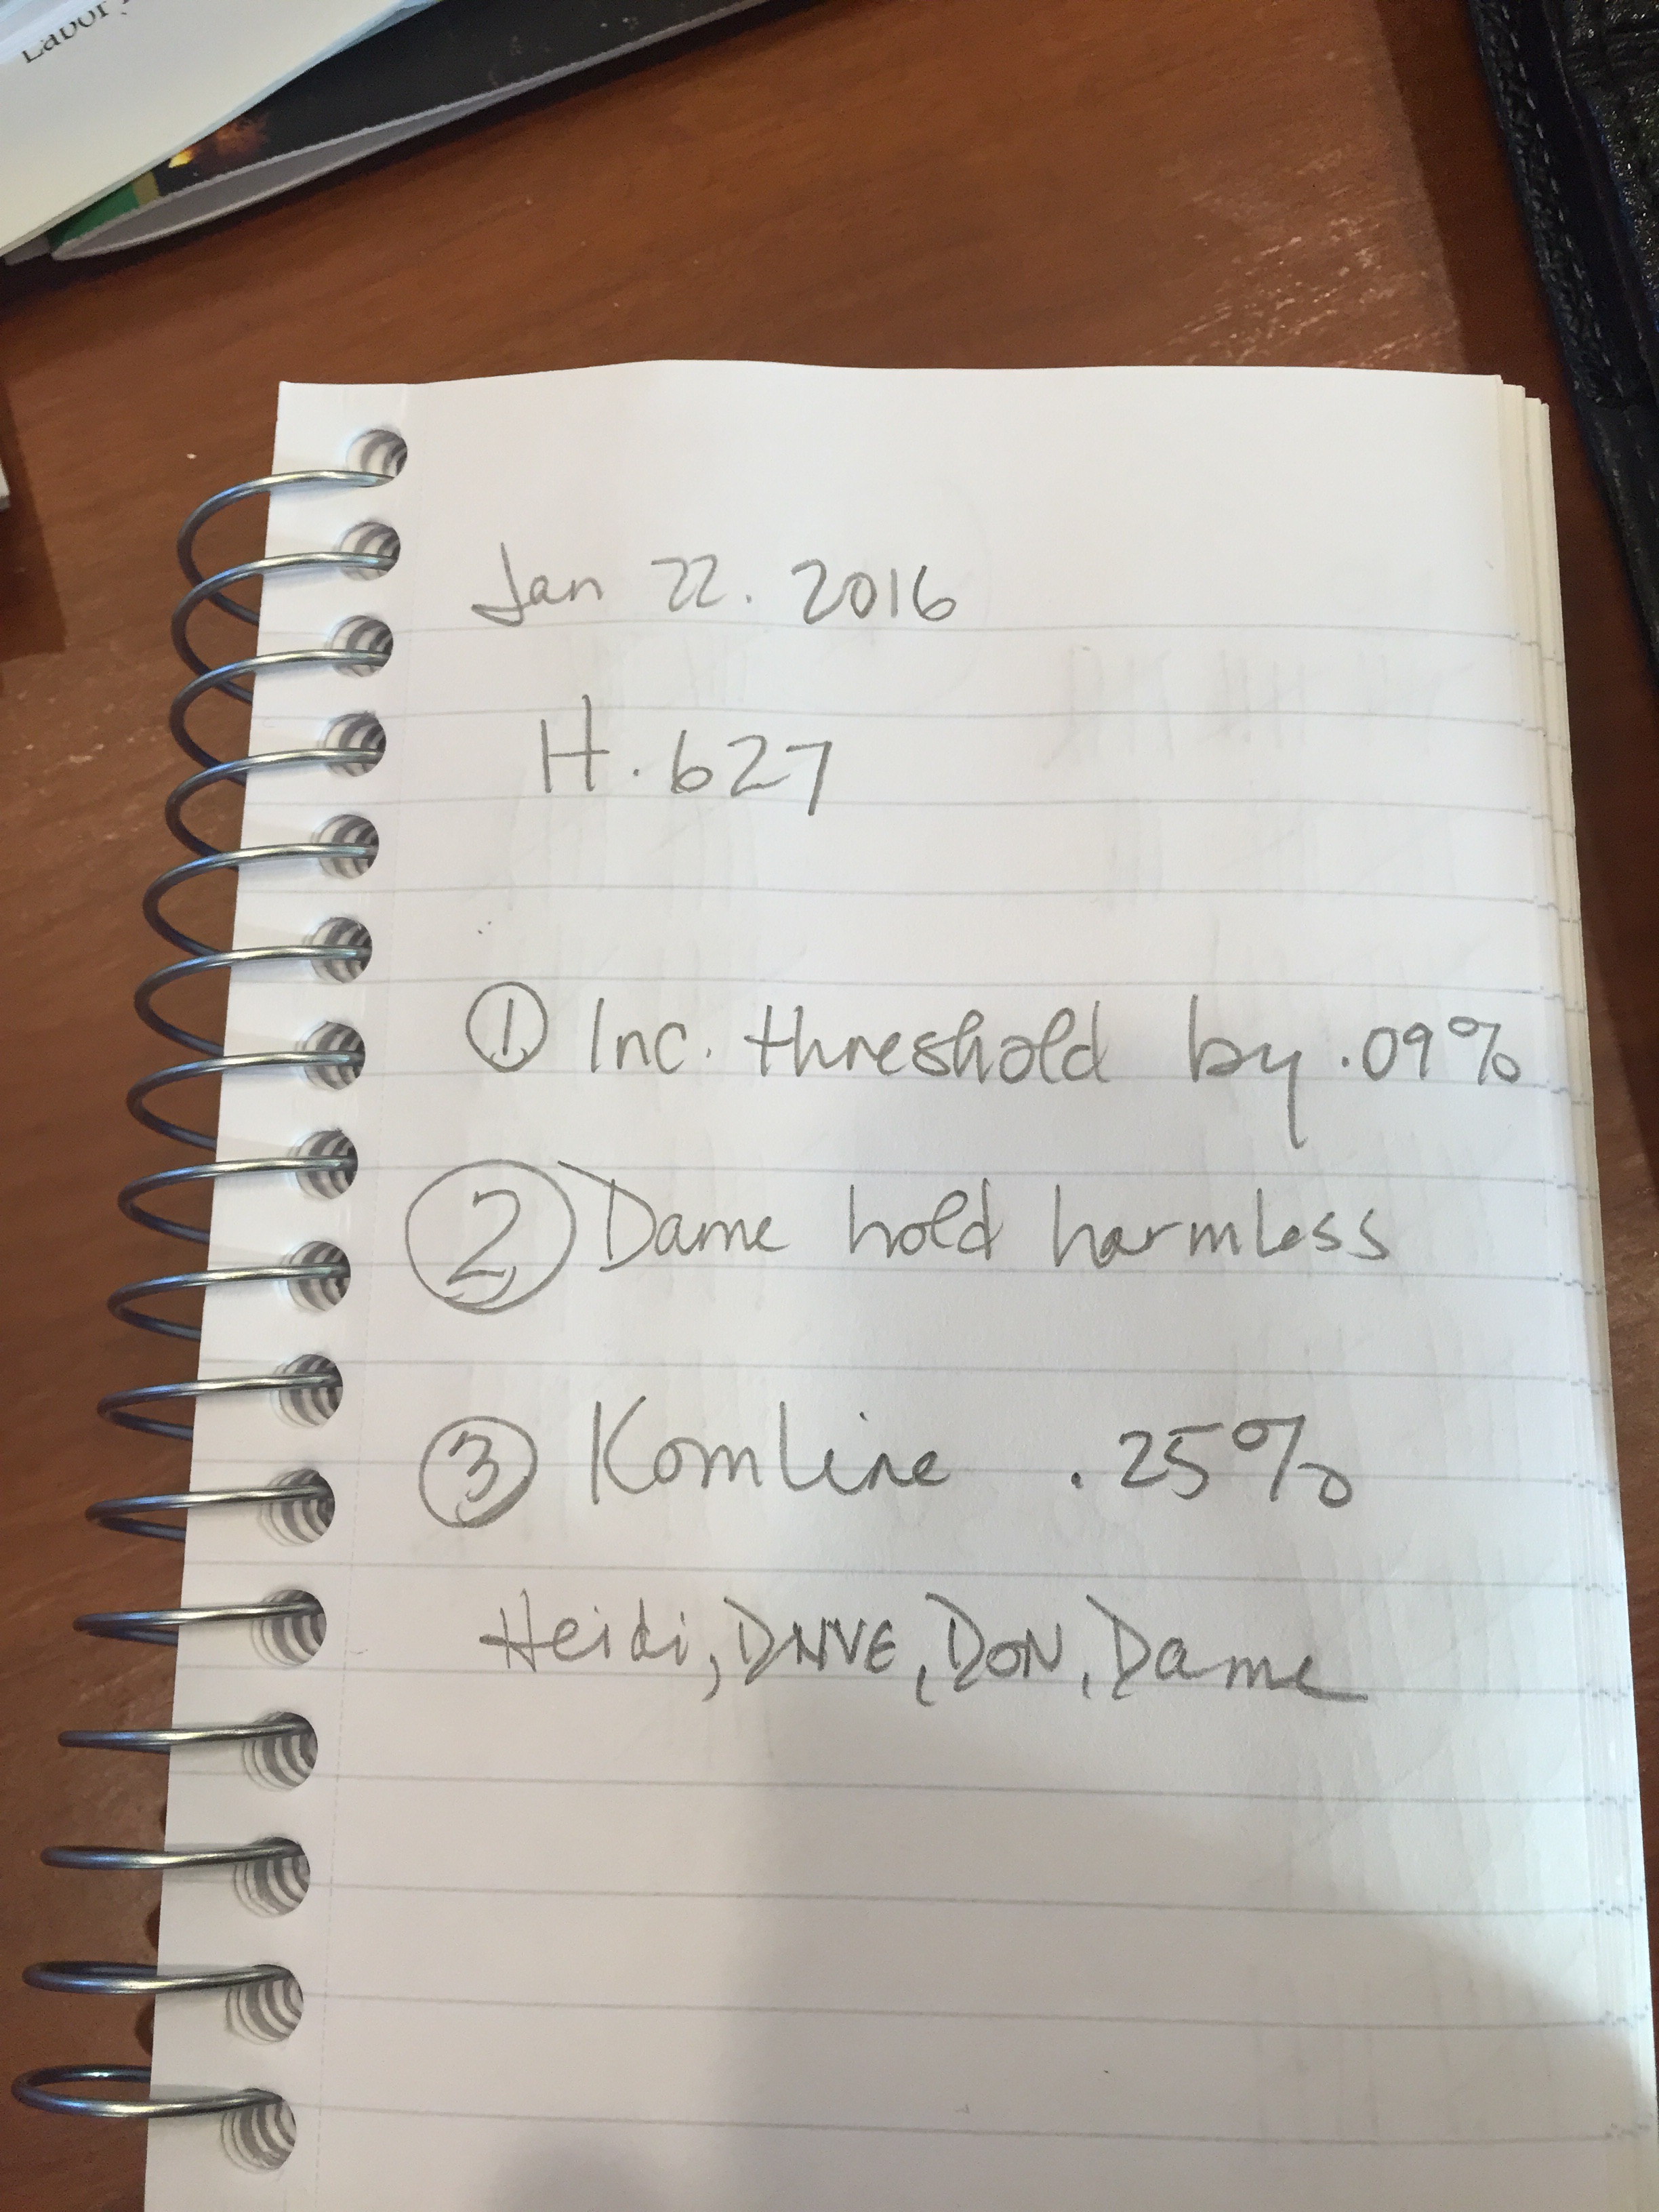 Labor
Jan 22. 2016
H. 627
① Inc. threshold by .09%
② Dame hold harmless
③ Komline .25%
Heidi, DAVE, DON, Dame